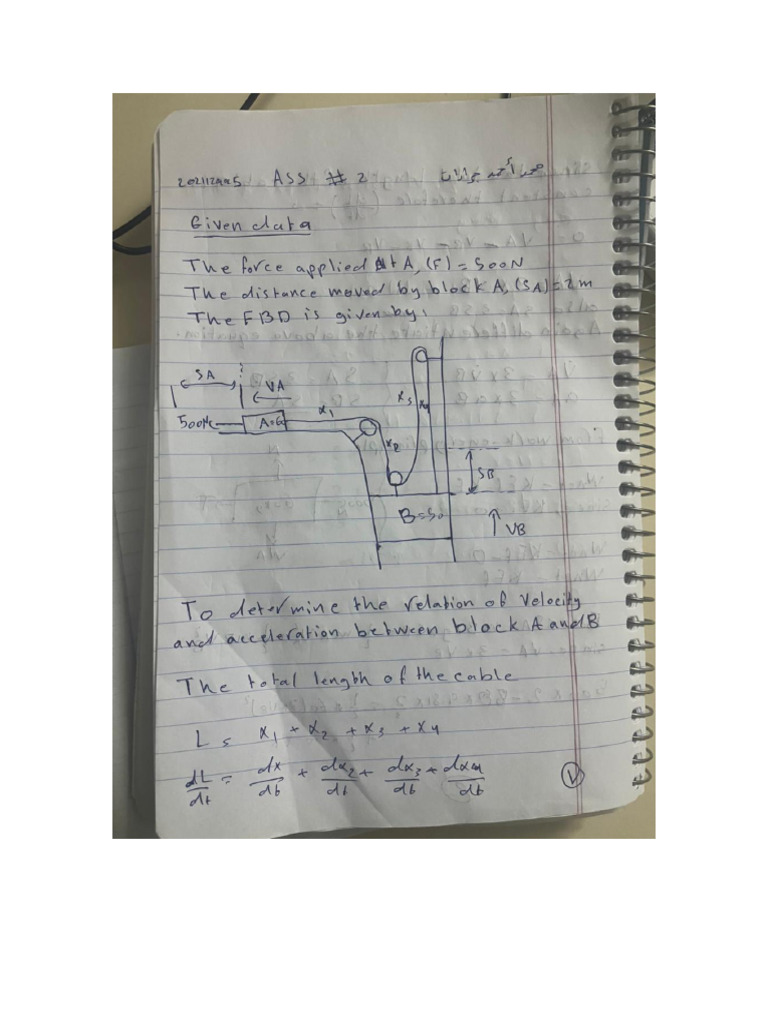 ASS # 2
Given data
The force applied At A, (F) = 500N
The distance moved by block A, (SA) = 2m
The FBD is given by:
SA
VA
500N
A=60
x1
x2
x3
x4
SB
B=50
VB
To determine the relation of velocity
and acceleration between block A and B
The total length of the cable
L = x1 + x2 + x3 + x4
dL/dt = dx/dt + dx2/dt + dx3/dt + dx4/dt